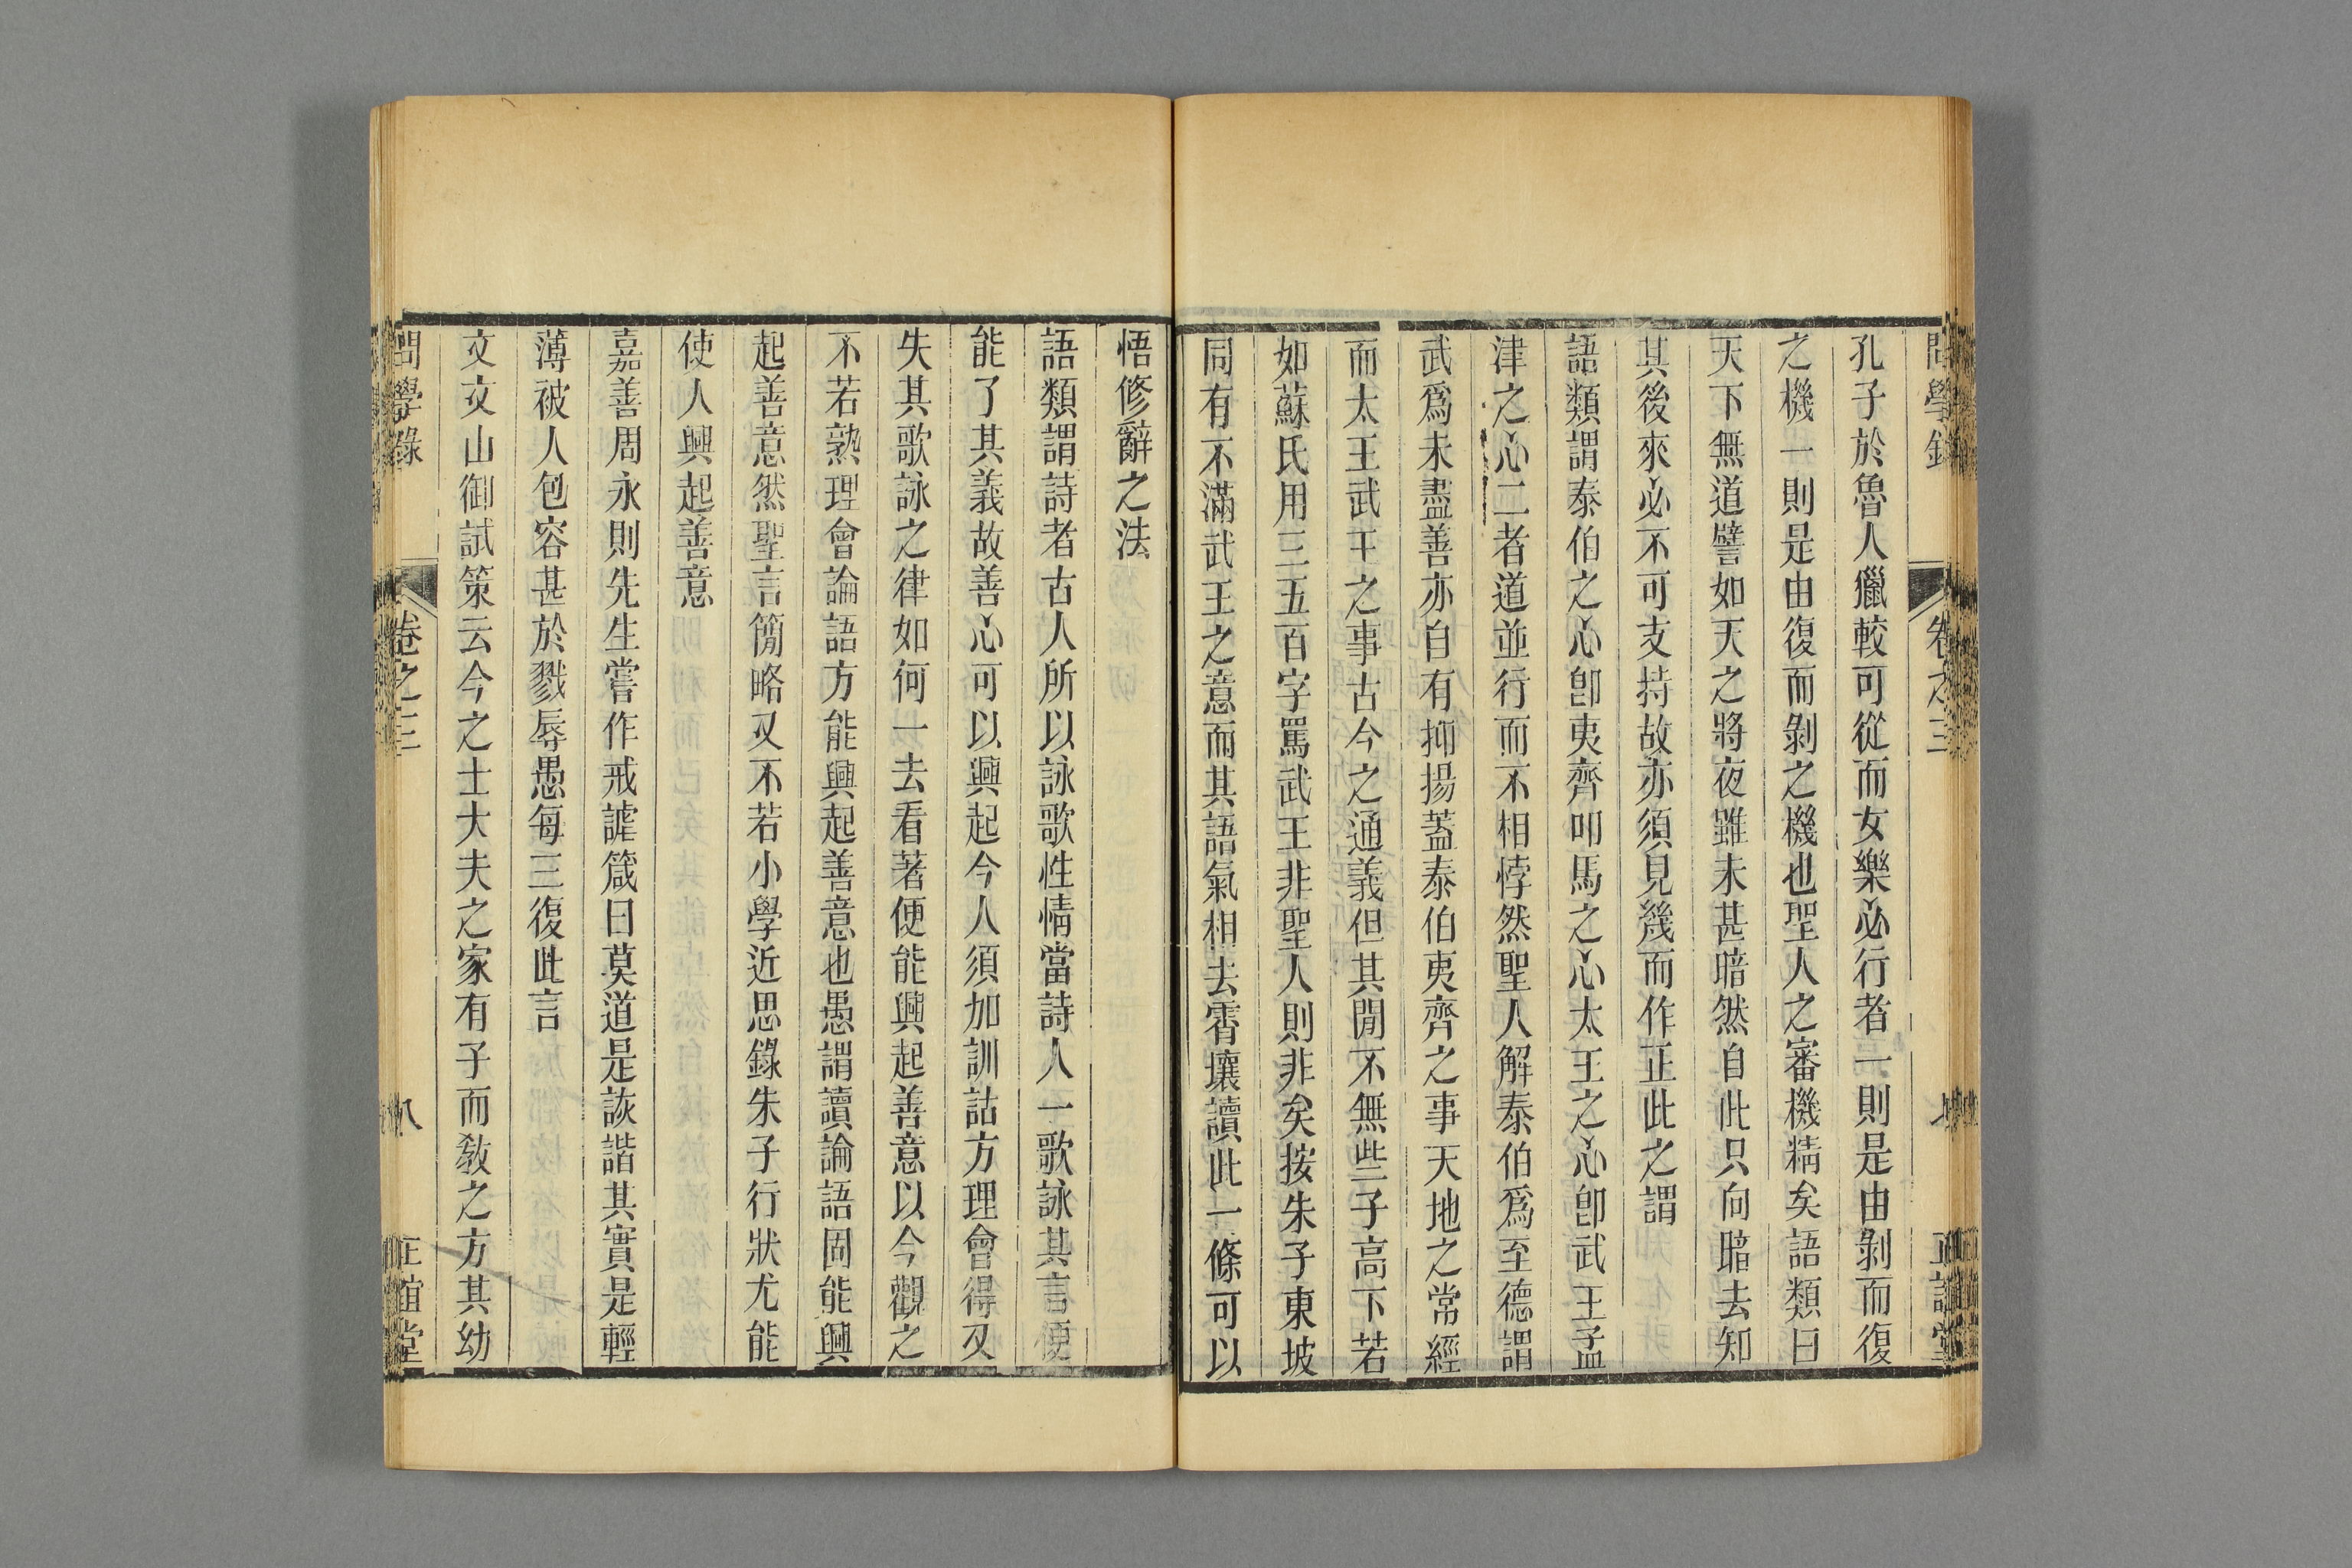 問學錄 卷之三 正誼堂
孔子於魯人獵較可從而女樂必行者一則是由剝而復
之機一則是由復而剝之機也聖人之審機精矣語類曰
天下無道譬如天之將夜雖未甚暗然自此只向暗去知
其後來必不可支持故亦須見幾而作正此之謂
語類謂泰伯之心卽夷齊叩馬之心太王之心卽武王孟
津之心二者道並行而不相悖然聖人解泰伯爲至德謂
武爲未盡善亦自有抑揚蓋泰伯夷齊之事天地之常經
而太王武王之事古今之通義但其閒不無些子高下若
如蘇氏用三五百字罵武王非聖人則非矣按朱子東坡
同有不滿武王之意而其語氣相去霄壤讀此一條可以
悟修辭之法
語類謂詩者古人所以詠歌性情當詩人一歌詠其言便
能了其義故善心可以興起今人須加訓詁方理會得又
失其歌詠之律如何一去看著便能興起善意以今觀之
不若熟理會論語方能興起善意也愚謂讀論語固能興
起善意然聖言簡略又不若小學近思錄朱子行狀尤能
使人興起善意
嘉善周永則先生嘗作戒謔箴曰莫道是詼諧其實是輕
薄被人包容甚於戮辱愚每三復此言
文文山御試策云今之士大夫之家有子而敎之方其幼
問學錄 卷之三 八 正誼堂